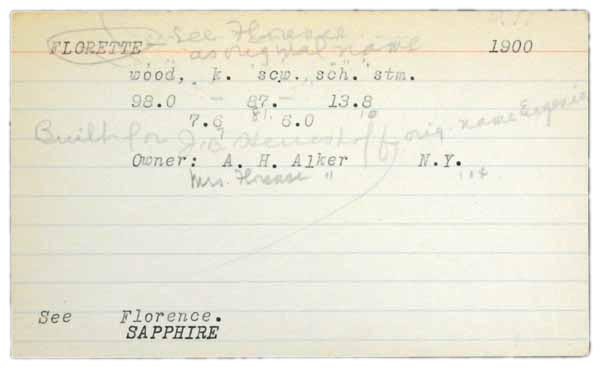 See Florence
FLORETTE as original name 1900
wood, k. scw. sch. stm.
98.0 - 87.- 13.8
7.6 6.0
Built for J.B. Herreshoff, orig. name Eugenia
Owner: A. H. Alker N.Y.
Mrs. Florence "
See Florence.
SAPPHIRE